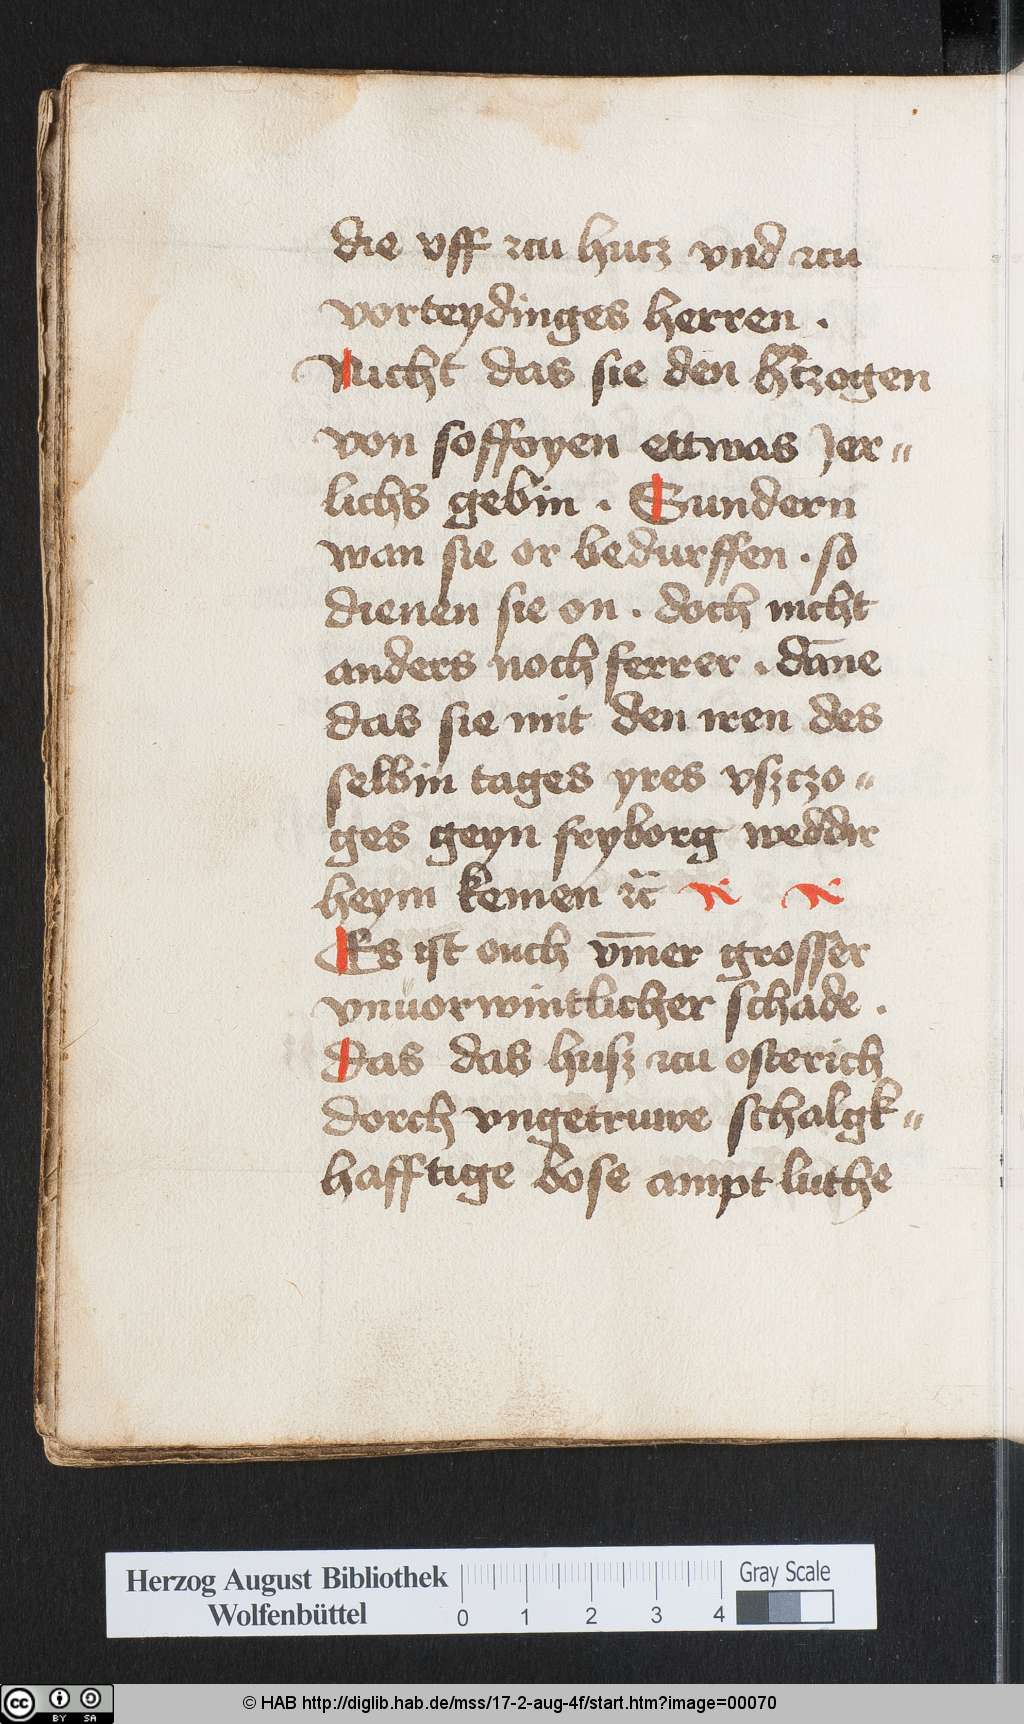 die vff zcu hutz vnd zcu
vorteydinges herren .
Nicht das sie den h̄tzogen
von soffoyen ettwas Jer〃
lichs gebin . Sundern
wan sie or bedurffen . so
dienen sie on . doch nicht
anders noch ferrer . dāne
das sie mit den iren des
selbin tages yres vszczo〃
ges geyn fryborg weddir
heym kemen
Es ist ouch vm̄er grosser
vnuorwintlicher schade .
das das husz zcu osterich
dorch vngetruwe schalgk〃
hafftige bose ampt luthe
Herzog August Bibliothek
Wolfenbüttel
0 1 2 3 4
Gray Scale
cc BY SA
© HAB http://diglib.hab.de/mss/17-2-aug-4f/start.htm?image=00070